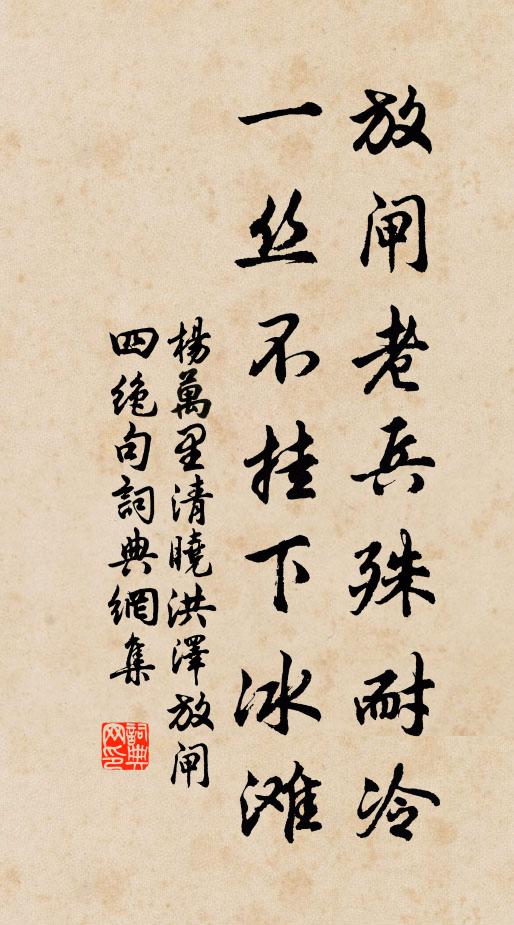 放闸老兵殊耐冷
一丝不挂下冰滩
楊萬里清曉洪澤放闸
四绝句詞典網集
詞典
网印